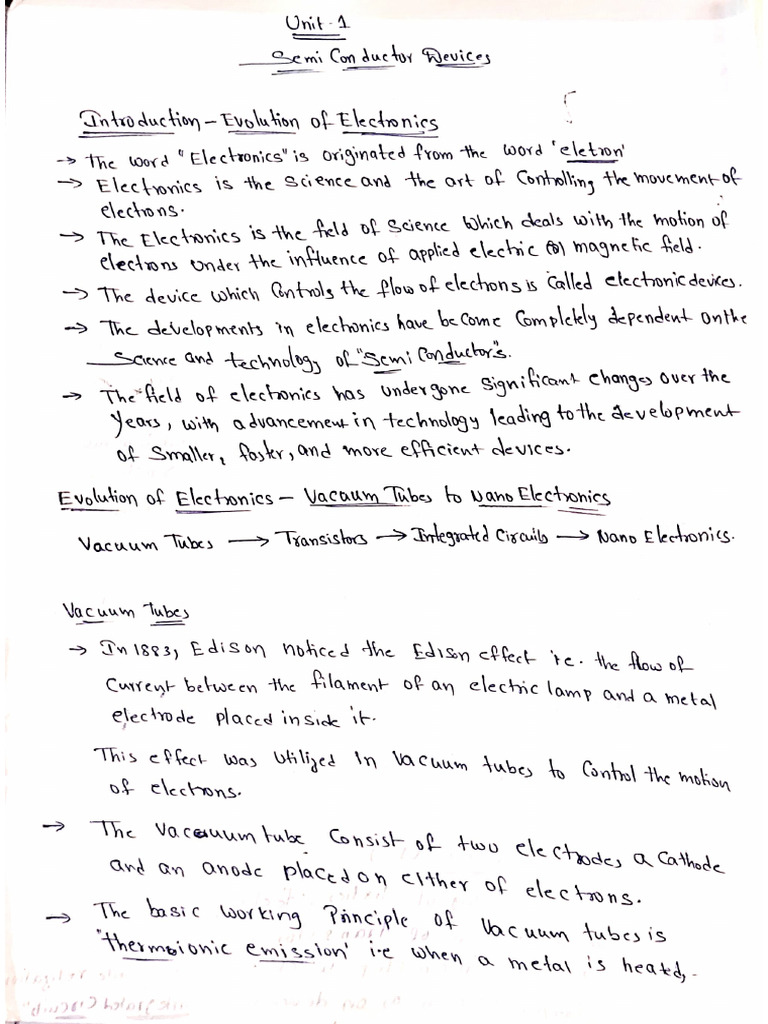 Unit-1
Semi Conductor Devices
Introduction - Evolution of Electronics
→ The word "Electronics" is originated from the word 'eletron'
→ Electronics is the science and the art of Controlling the movement of
electrons.
→ The Electronics is the field of Science which deals with the motion of
electrons under the influence of applied electric (or) magnetic field.
→ The device which Controls the flow of electrons is Called electronic devices.
→ The developments in electronics have become Completely dependent on the
Science and technology of "Semi Conductor's.
→ The field of electronics has undergone Significant Changes over the
years, with advancement in technology leading to the development
of Smaller, faster, and more efficient devices.
Evolution of Electronics - Vacaum Tubes to Nano Electronics
Vacuum Tubes → Transistors → Integrated Circuits → Nano Electronics.
Vacuum Tubes
→ In 1883, Edison noticed the Edison effect i.e. the flow of
Current between the filament of an electric lamp and a metal
electrode placed inside it.
This effect was utilized in Vacuum tubes to Control the motion
of electrons.
→ The Vacuum tube Consist of two electrodes a Cathode
and an anode placed on either of electrons.
→ The basic working Principle of Vacuum tubes is
'thermoionic emission' i.e when a metal is heated,